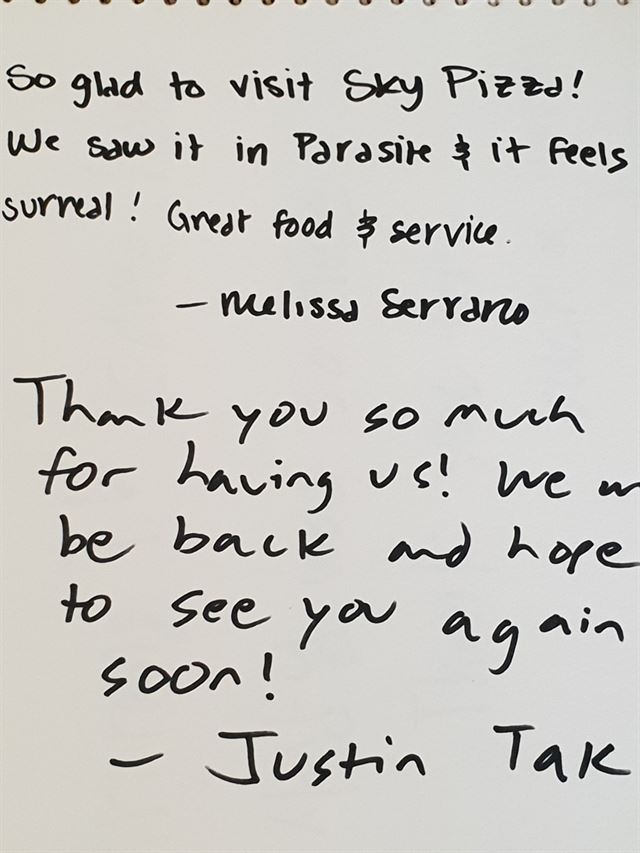 So glad to visit Sky Pizza!
We saw it in Parasite & it feels
surreal! Great food & service.
— Melissa Serrano
Thank you so much
for having us! We
be back and hope
to see you again
soon!
— Justin Tak